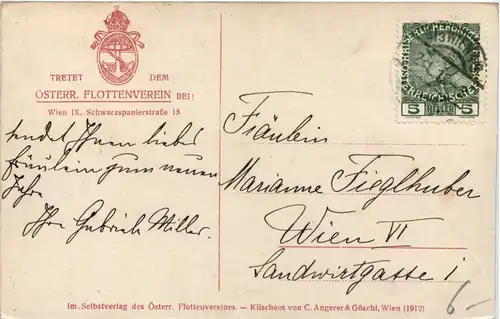 TRETET DEM
ÖSTERR. FLOTTENVEREIN BEI!
Wien IX. Schwarzspanierstraße 15
sendet Ihnen liebes
Fräulein zum neuen
Jahre
Ihr Gabriele Miller.
Fräulein
Marianne Fieglhuber
Wien VI
Sandwirtgasse 1
5 HELLER 5
6-
Im Selbstverlag des Österr. Flottenvereines. – Klischees von C. Angerer & Göschl, Wien (1912)